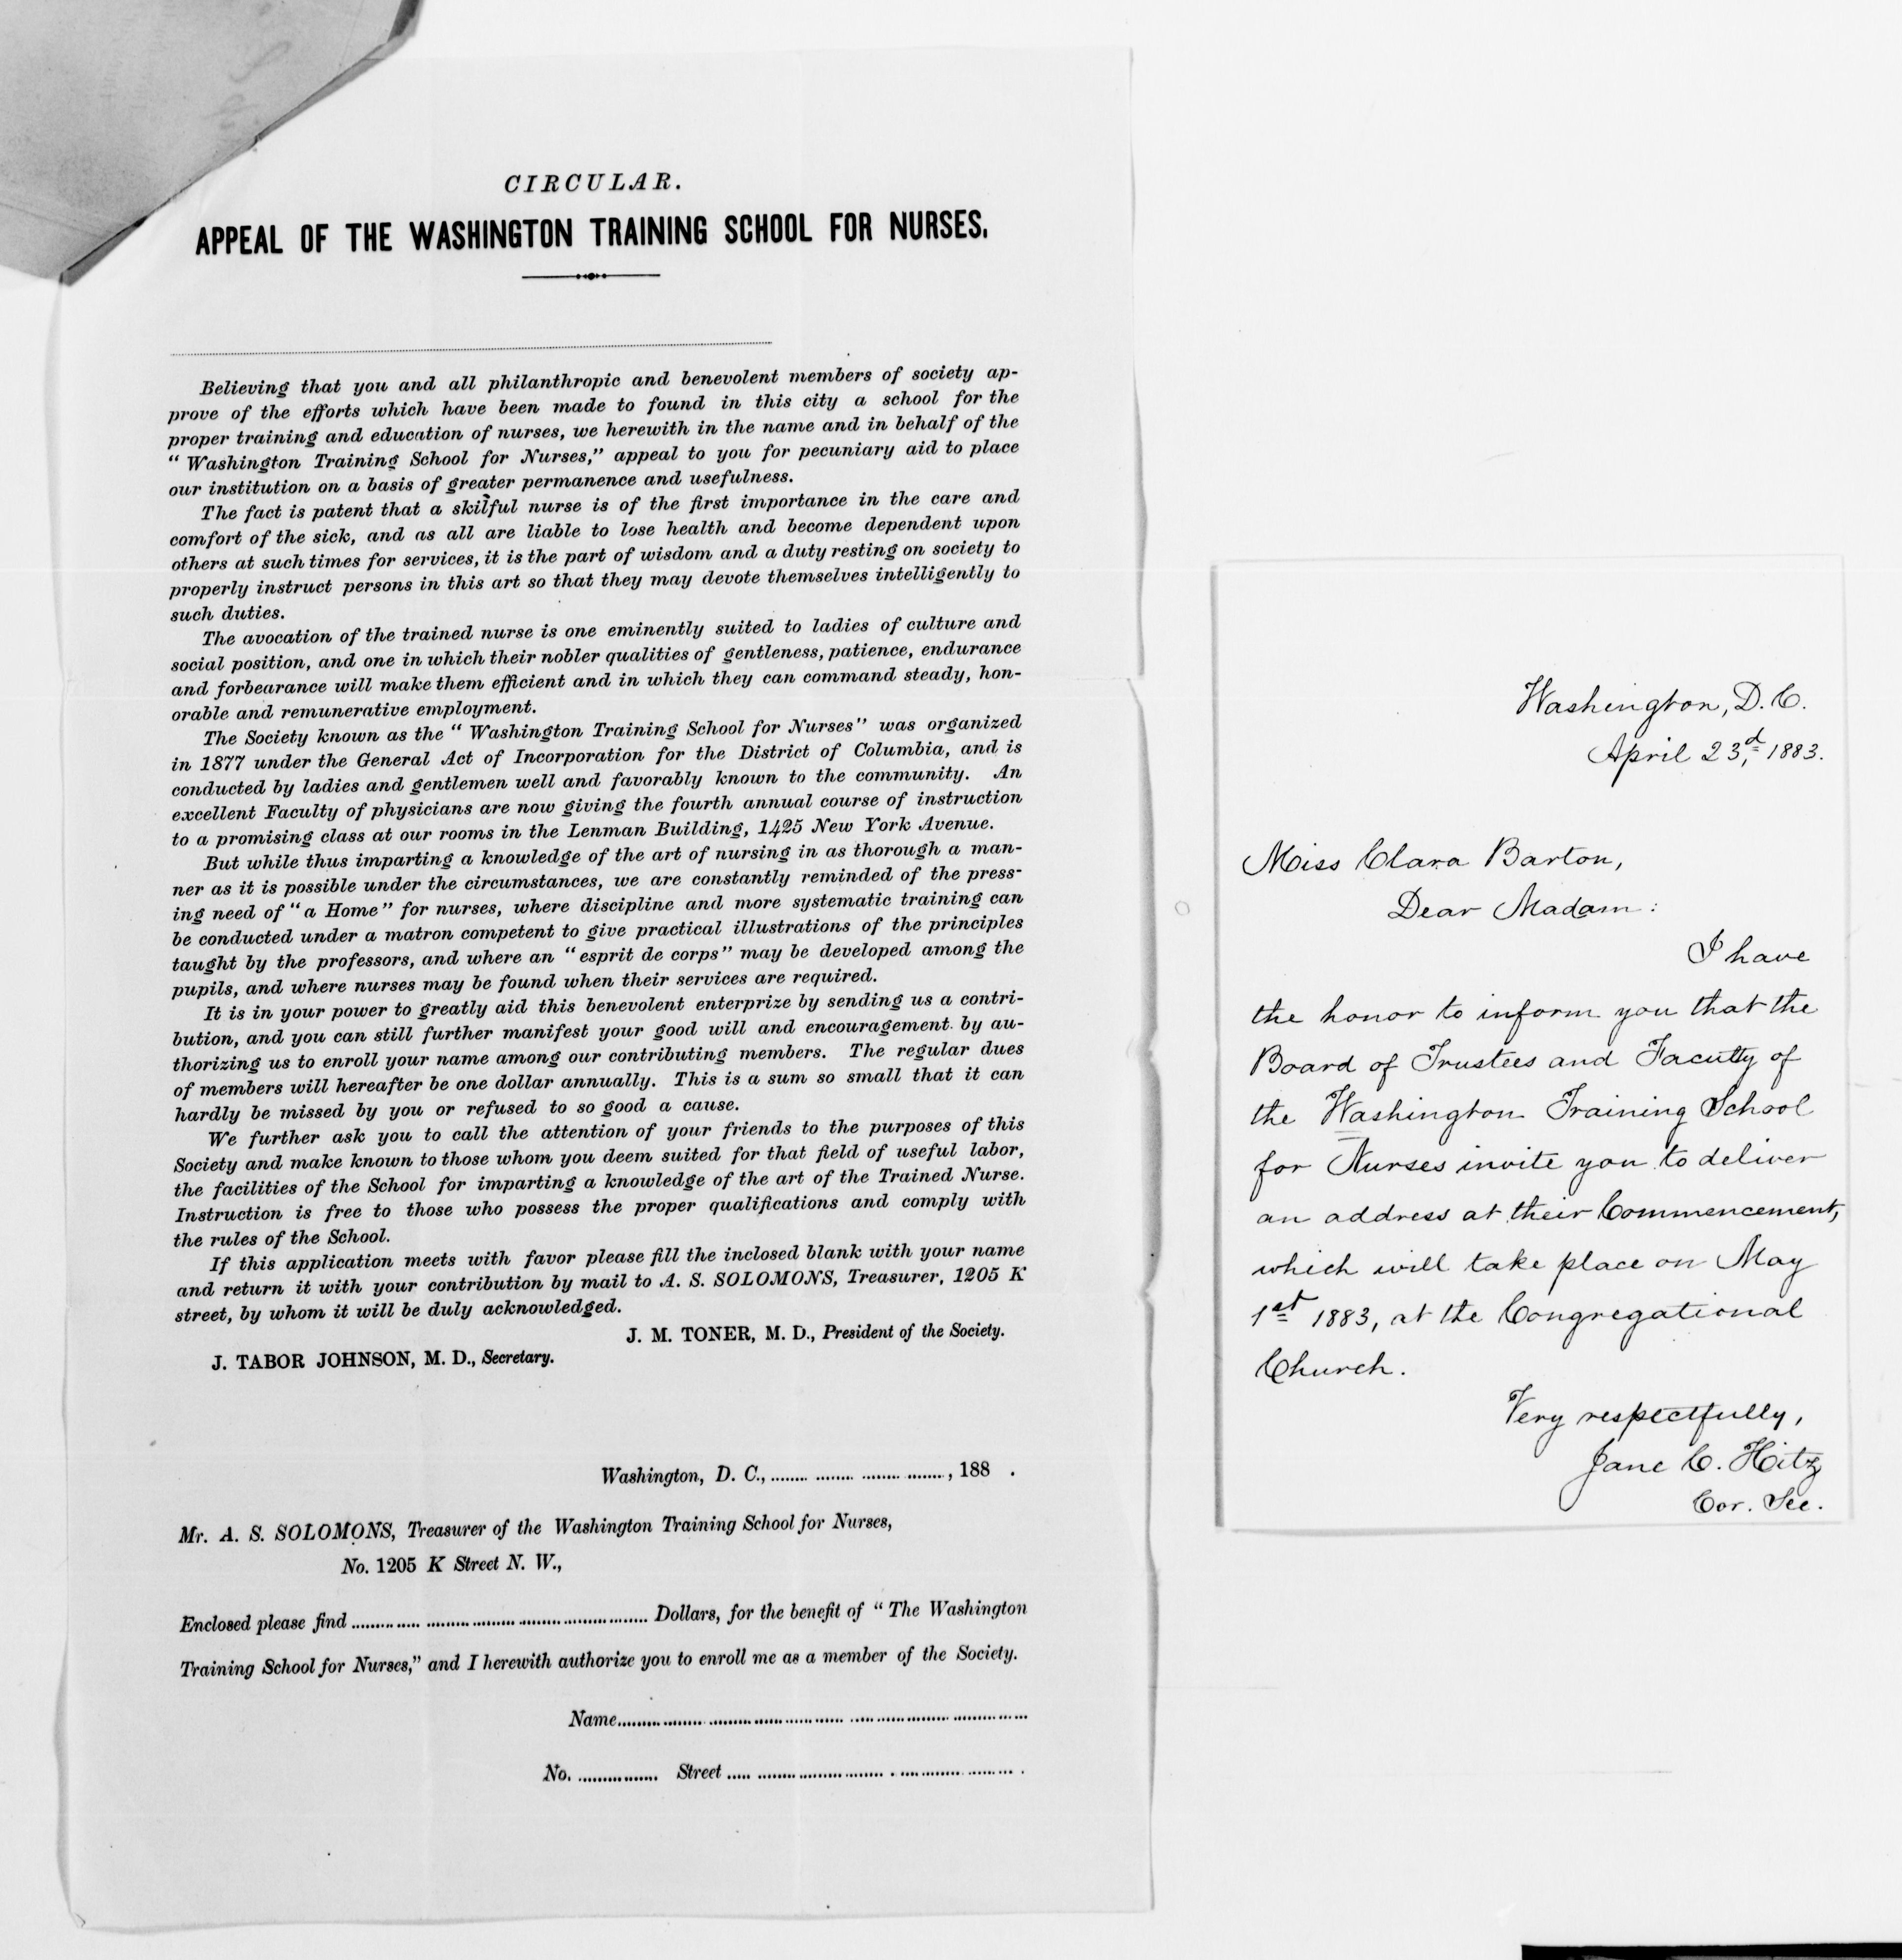 CIRCULAR.
APPEAL OF THE WASHINGTON TRAINING SCHOOL FOR NURSES.
Believing that you and all philanthropic and benevolent members of society ap-
prove of the efforts which have been made to found in this city a school for the
proper training and education of nurses, we herewith in the name and in behalf of the
“ Washington Training School for Nurses,” appeal to you for pecuniary aid to place
our institution on a basis of greater permanence and usefulness.
The fact is patent that a skilful nurse is of the first importance in the care and
comfort of the sick, and as all are liable to lose health and become dependent upon
others at such times for services, it is the part of wisdom and a duty resting on society to
properly instruct persons in this art so that they may devote themselves intelligently to
such duties.
The avocation of the trained nurse is one eminently suited to ladies of culture and
social position, and one in which their nobler qualities of gentleness, patience, endurance
and forbearance will make them efficient and in which they can command steady, hon-
orable and remunerative employment.
The Society known as the “ Washington Training School for Nurses” was organized
in 1877 under the General Act of Incorporation for the District of Columbia, and is
conducted by ladies and gentlemen well and favorably known to the community. An
excellent Faculty of physicians are now giving the fourth annual course of instruction
to a promising class at our rooms in the Lenman Building, 1425 New York Avenue.
But while thus imparting a knowledge of the art of nursing in as thorough a man-
ner as it is possible under the circumstances, we are constantly reminded of the press-
ing need of “a Home” for nurses, where discipline and more systematic training can
be conducted under a matron competent to give practical illustrations of the principles
taught by the professors, and where an “esprit de corps” may be developed among the
pupils, and where nurses may be found when their services are required.
It is in your power to greatly aid this benevolent enterprize by sending us a contri-
bution, and you can still further manifest your good will and encouragement by au-
thorizing us to enroll your name among our contributing members. The regular dues
of members will hereafter be one dollar annually. This is a sum so small that it can
hardly be missed by you or refused to so good a cause.
We further ask you to call the attention of your friends to the purposes of this
Society and make known to those whom you deem suited for that field of useful labor,
the facilities of the School for imparting a knowledge of the art of the Trained Nurse.
Instruction is free to those who possess the proper qualifications and comply with
the rules of the School.
If this application meets with favor please fill the inclosed blank with your name
and return it with your contribution by mail to A. S. SOLOMONS, Treasurer, 1205 K
street, by whom it will be duly acknowledged.
J. M. TONER, M. D., President of the Society.
J. TABOR JOHNSON, M. D., Secretary.
Washington, D. C., ........ ........ ........ ........, 188 .
Mr. A. S. SOLOMONS, Treasurer of the Washington Training School for Nurses,
No. 1205 K Street N. W.,
Enclosed please find ........................................ Dollars, for the benefit of “ The Washington
Training School for Nurses,” and I herewith authorize you to enroll me as a member of the Society.
Name............................................................
No. ................ Street ............................................
Washington, D. C.
April 23,d 1883.
Miss Clara Barton,
Dear Madam:
I have
the honor to inform you that the
Board of Trustees and Faculty of
the Washington Training School
for Nurses invite you to deliver
an address at their Commencement,
which will take place on May
1st 1883, at the Congregational
Church.
Very respectfully,
Jane C. Hitz
Cor. Sec.